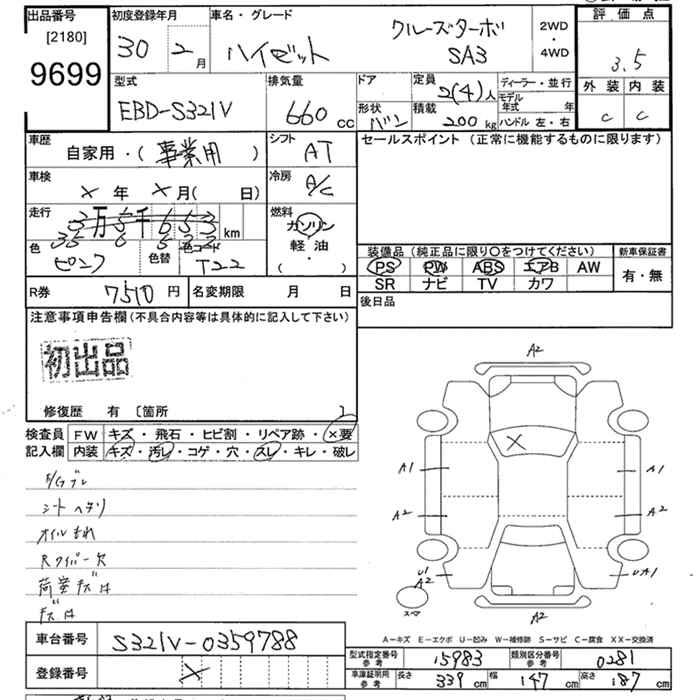 出品番号 初度登録年月 車名・グレード 評価点
[2180] 30年 2月 ハイゼット クルーズターボ SA3 2WD・4WD 3.5
9699 外装 内装
C C
型式 排気量 ドア 定員 ディーラー・並行
EBD-S321V 660cc 2(4)人 モデル年式 年
形状 バン 積載 200kg ハンドル 左・右
車歴 シフト セールスポイント (正常に機能するものに限ります)
自家用・(事業用) AT
車検 冷房
×年 ×月(日) A/C
走行 燃料
3万5千653 km ガソリン
35 6 5 3 3 軽油
色 色替 色コード (・)
ピンク T22
装備品 (純正品に限り○をつけてください) 新車保証書
PS PW ABS エアB AW 有・無
SR ナビ TV カワ
R券 7510円 名変期限 月 日 後日品
注意事項申告欄 (不具合内容等は具体的に記入して下さい)
初出品
修復歴 有 [箇所 ]
検査員 FW キズ・飛石・ヒビ割・リペア跡・×要
記入欄 内装 キズ・汚レ・コゲ・穴・スレ・キレ・破レ
シートヘタリ
オイルもれ
Rワイパー欠
荷室キズ凹
キズ凹
A2
×
A1 A1
A2 A2
U1 UA1
A2
スマ
A2
A−キズ E−エクボ U−凹み W−補修跡 S−サビ C−腐食 XX−交換済
車台番号 S321V-0359788
登録番号 ×
型式指定番号 参考 15983 類別区分番号 参考 0281
車庫証明用 参考 長さ 339cm 幅 147cm 高さ 187cm